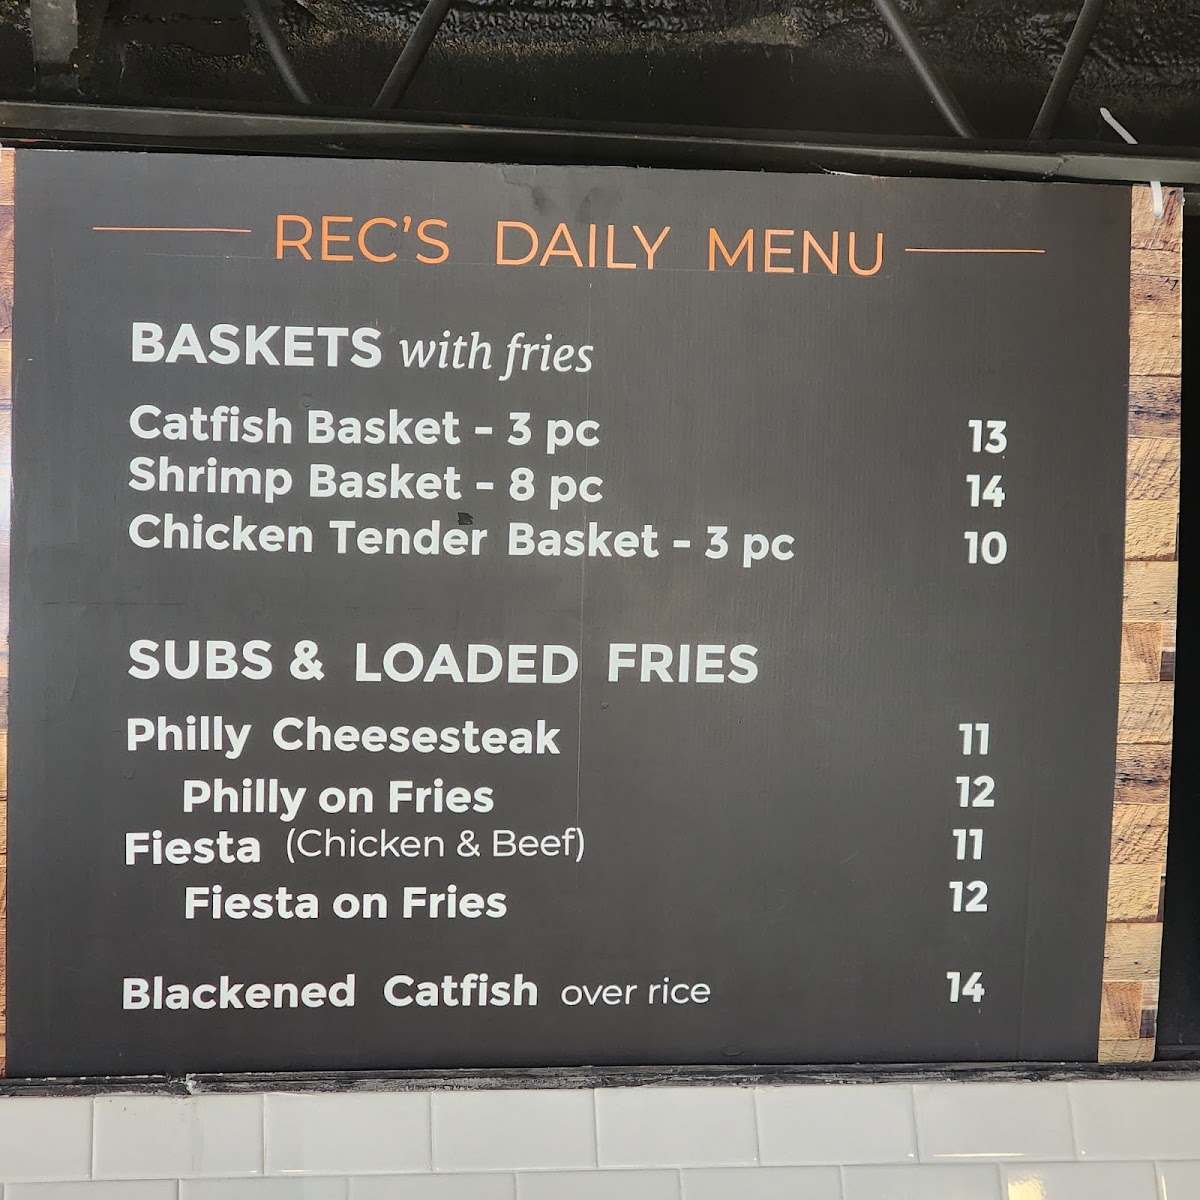 REC'S DAILY MENU
BASKETS with fries
Catfish Basket - 3 pc 13
Shrimp Basket - 8 pc 14
Chicken Tender Basket - 3 pc 10
SUBS & LOADED FRIES
Philly Cheesesteak 11
Philly on Fries 12
Fiesta (Chicken & Beef) 11
Fiesta on Fries 12
Blackened Catfish over rice 14